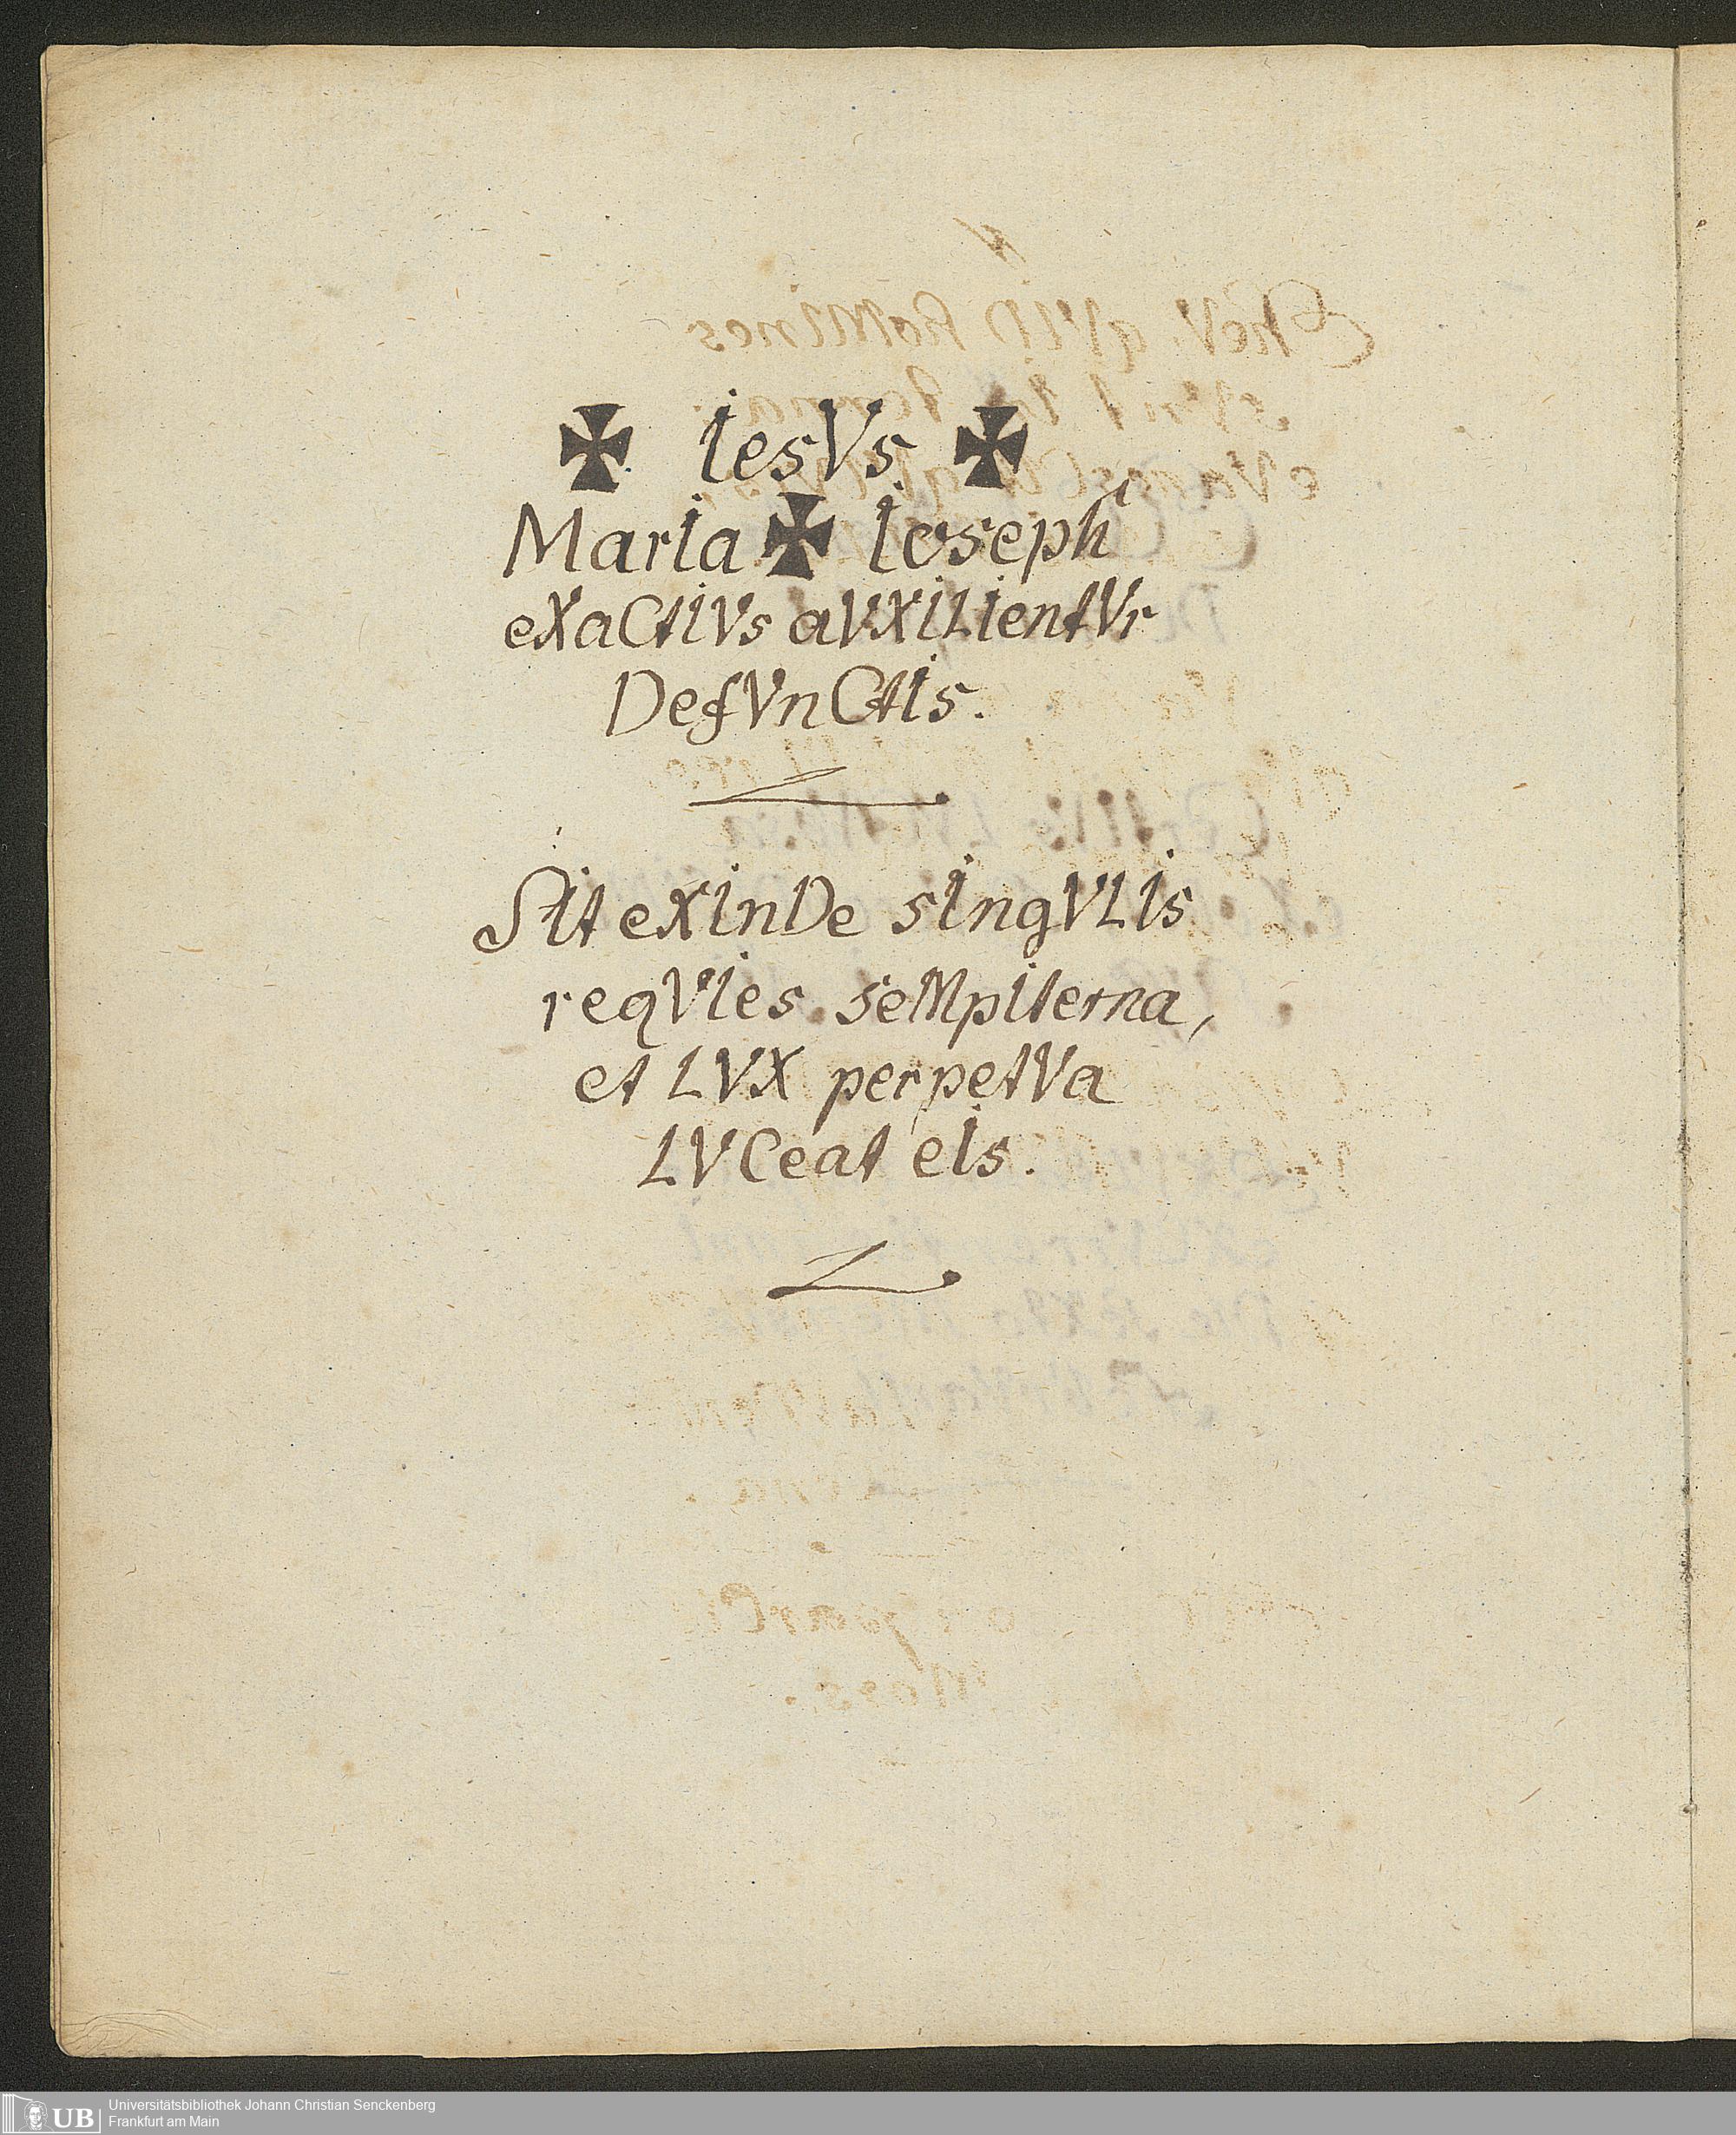 ✠ IesVs ✠
MarIa ✠ Ioseph
eXaCtIVs aVXILIentVr
DefVnCtIs.
SIt eXInDe sIngVLIs
reqVIes seMpIterna,
et LVX perpetVa
LVCeat eIs.
UB Universitätsbibliothek Johann Christian Senckenberg
Frankfurt am Main